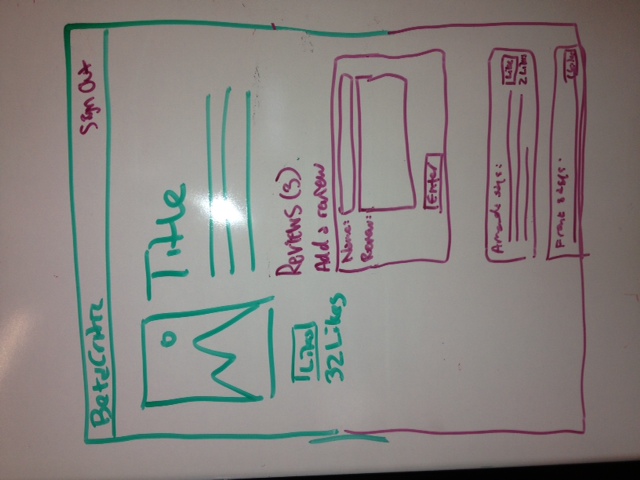 BetaCritic
Sign Out
Title
Like
32 Likes
Reviews (3)
Add a review
Name:
Review:
Enter
Amanda says:
Like
2 Likes
says: